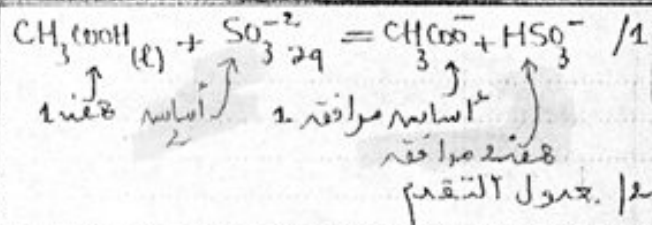 1/ CH₃COOH(l) + SO₃⁻² aq = CH₃COO⁻ + HSO₃⁻
حمض 1 أساس 2 أساس مرافق 1
حمض مرافق
2/ جدول التقدم